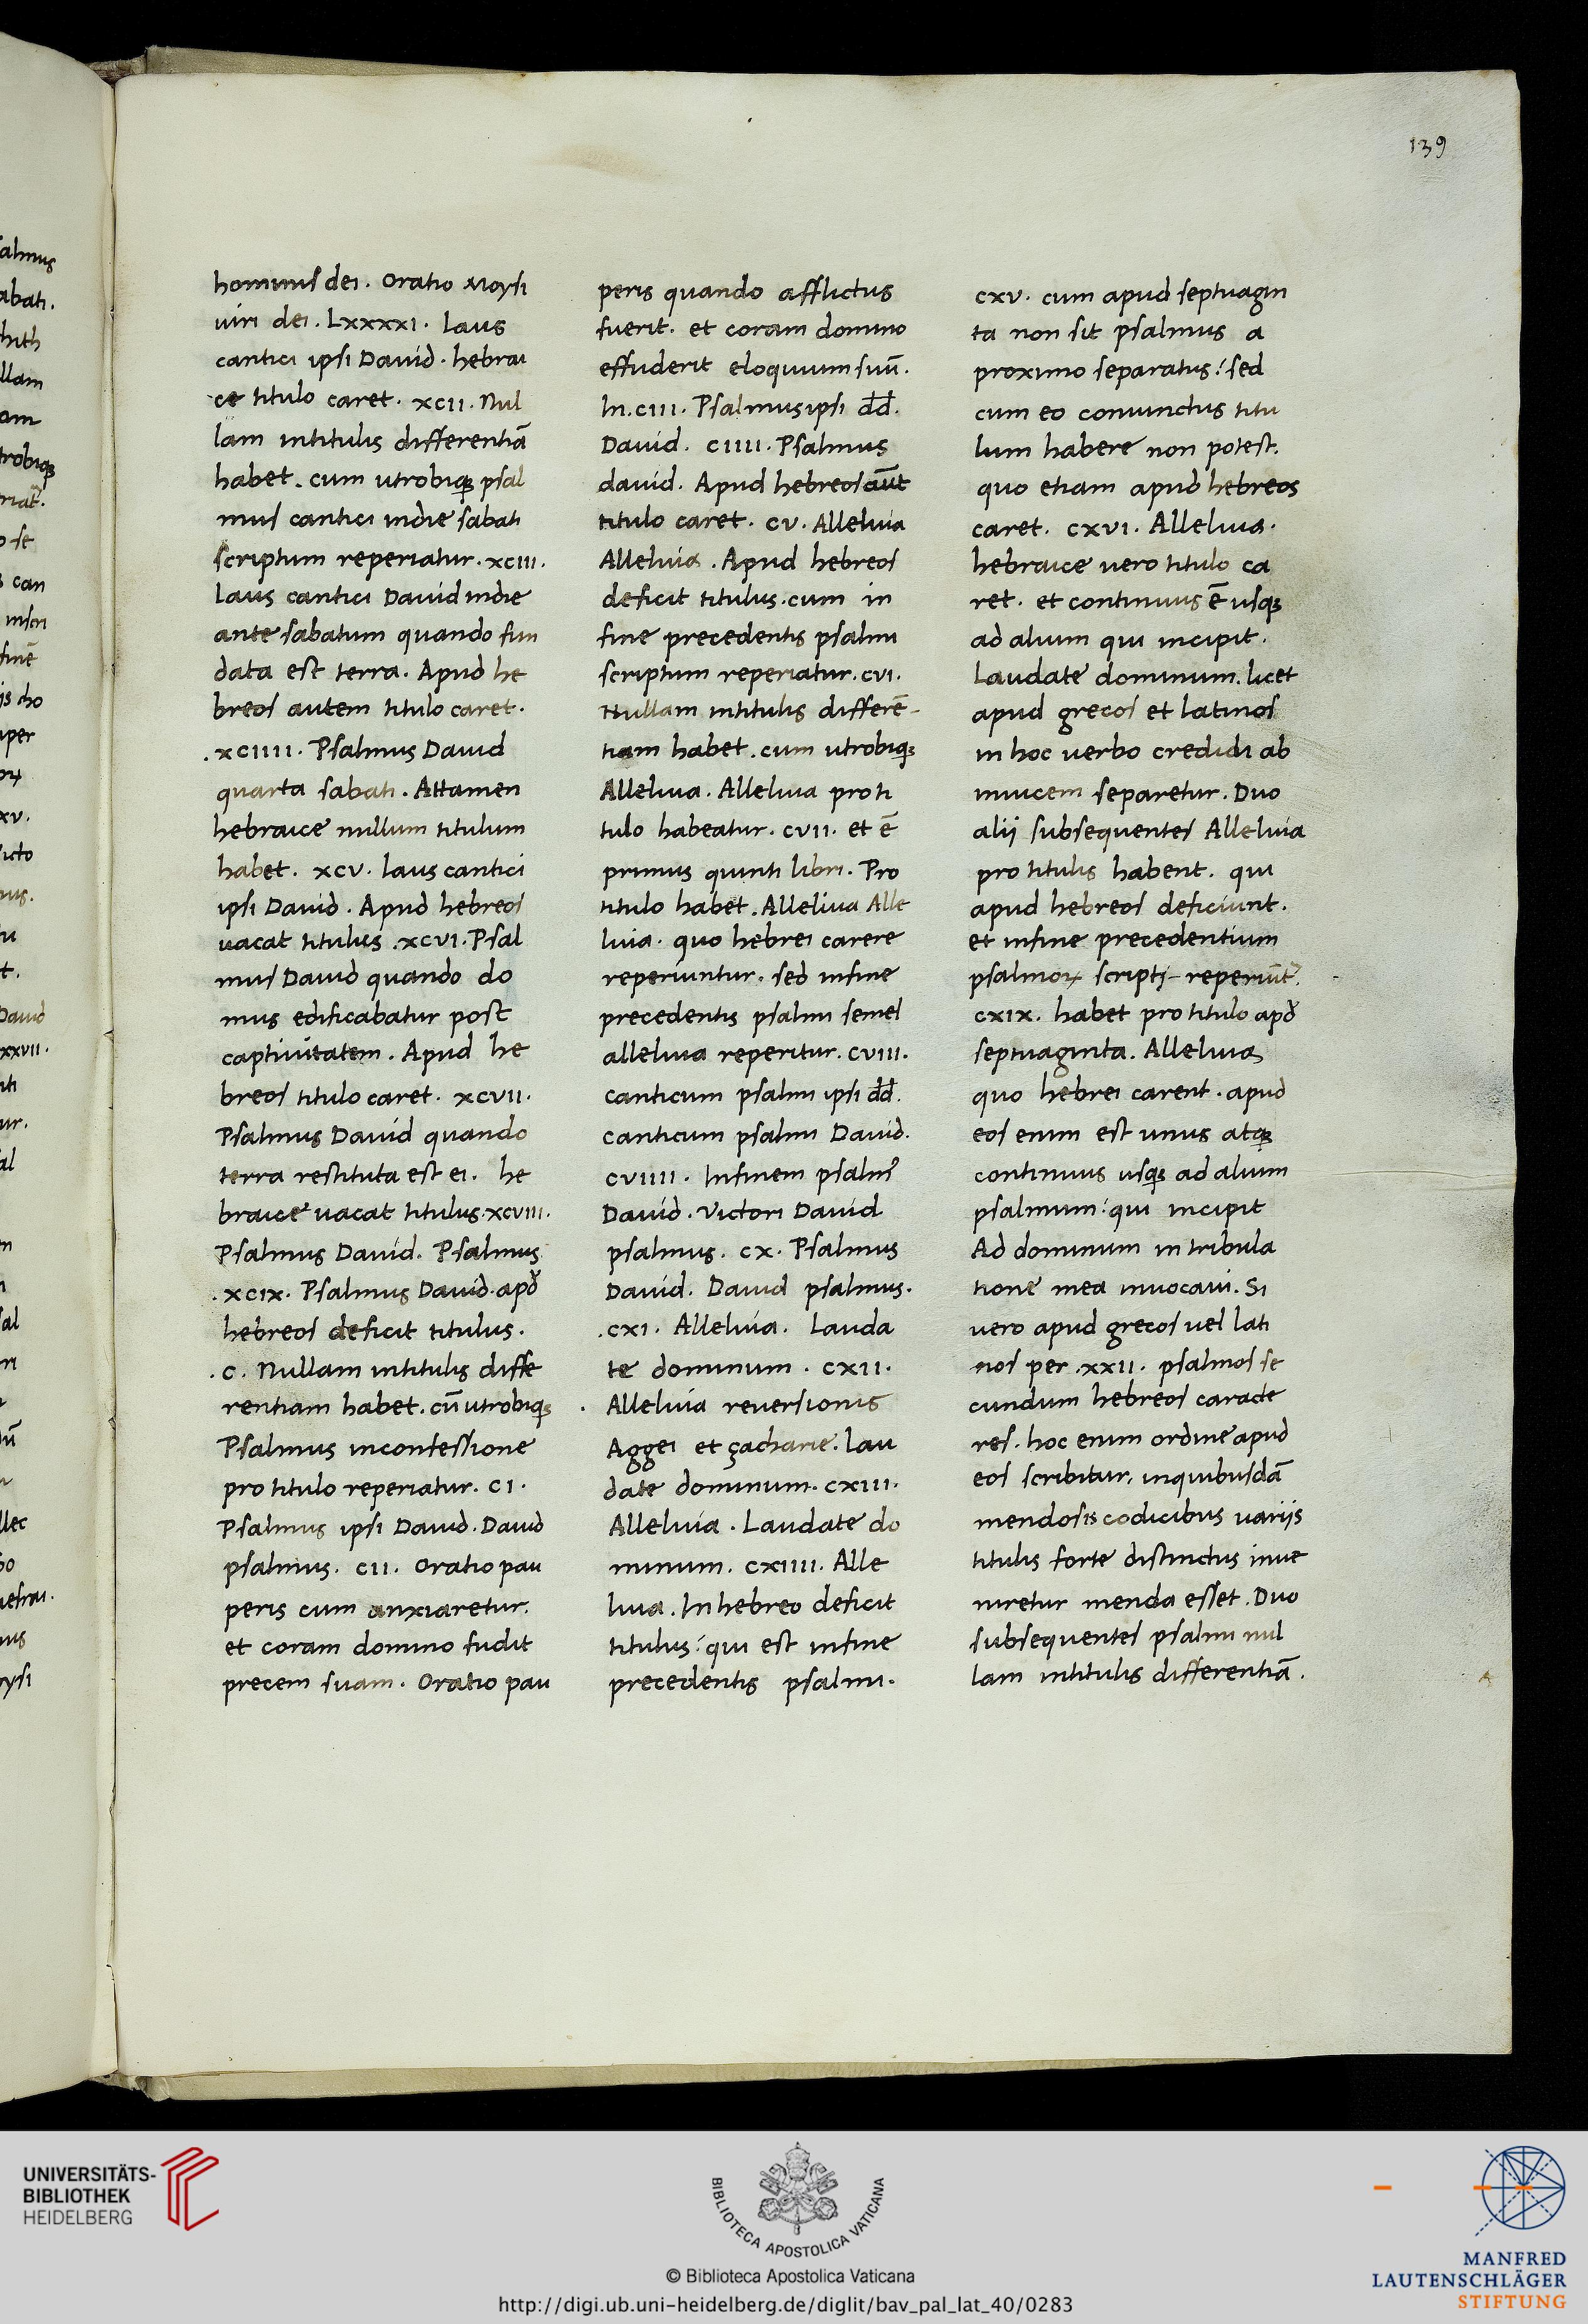 139
hominis dei. Oratio Moysi
uiri dei. Lxxxxi. Laus
cantici ipsi Dauid. hebrai
ce titulo caret. xcii. Nul
lam intitulis differentiā
habet. cum utrobiqꝫ psal
mus cantici indie sabati
scriptum reperiatur. xciii.
Laus cantici Dauid indie
ante sabatum quando fun
data est terra. Apud he
breos autem titulo caret.
.xciiii. Psalmus Dauid
quarta sabati. Attamen
hebraice nullum titulum
habet. xcv. laus cantici
ipsi Dauid. Apud hebreos
uacat titulus .xcvi. Psal
mus Dauid quando do
mus edificabatur post
captiuitatem. Apud he
breos titulo caret. xcvii.
Psalmus Dauid quando
terra restituta est ei. he
braice uacat titulus. xcviii.
Psalmus Dauid. Psalmus
.xcix. Psalmus Dauid. apđ
hebreos deficit titulus.
.c. Nullam intitulis diffe
rentiam habet. cū utrobiqꝫ
Psalmus inconfessione
pro titulo reperiatur. ci.
Psalmus ipsi Dauid. Dauid
psalmus. cii. Oratio pau
peris cum anxiaretur.
et coram domino fudit
precem suam. Oratio pau
peris quando afflictus
fuerit. et coram domino
effuderit eloquium suū.
In. ciii. Psalmus ipsi đđ.
Dauid. ciiii. Psalmus
dauid. Apud hebreos aūt
titulo caret. cv. Alleluia
Alleluia. Apud hebreos
deficit titulus. cum in
fine precedentis psalmi
scriptum reperiatur. cvi.
Nullam intitulis differē-
tiam habet. cum utrobiqꝫ
Alleluia. Alleluia pro ti
tulo habeatur. cvii. et ē
primus quinti libri. Pro
titulo habet. Alleluia Alle
luia. quo hebrei carere
reperiuntur. sed infine
precedentis psalmi semel
alleluia reperitur. cviii.
canticum psalmi ipsi đđ.
canticum psalmi Dauid.
cviiii. Infinem psalmꝰ
Dauid. Victori Dauid
psalmus. cx. Psalmus
Dauid. Dauid psalmus.
.cxi. Alleluia. Lauda
te dominum. cxii.
. Alleluia reuersionis
Aggei et çacharie. lau
date dominum. cxiii.
Alleluia. Laudate do
minum. cxiiii. Alle
luia. In hebreo deficit
titulus: qui est infine
precedentis psalmi.
cxv. cum apud septuagin
ta non sit psalmus a
proximo separatus: sed
cum eo coniunctus titu
lum habere non potest.
quo etiam apud hebreos
caret. cxvi. Alleluia.
hebraice uero titulo ca
ret. et continuus ē usqꝫ
ad alium qui incipit.
Laudate dominum. licet
apud grecos et latinos
in hoc uerbo credidi ab
inuicem separetur. Duo
alij subsequentes Alleluia
pro titulis habent. qui
apud hebreos deficiunt.
et infine precedentium
psalmoꝝ scripti reperiūt̃.
cxix. habet pro titulo apđ
septuaginta. Alleluia
quo hebrei carent. apud
eos enim est unus atqꝫ
continuus usqꝫ ad alium
psalmum: qui incipit
Ad dominum in tribula
tione mea inuocaui. Si
uero apud grecos uel lati
nos per .xxii. psalmos se
cundum hebreos caracte
res. hoc enim ordine apud
eos scribitur. inquibusdā
mendosis codicibus uariis
titulis forte distinctus inue
niretur menda esset. Duo
subsequentes psalmi nul
lam intitulis differentiā.
UNIVERSITÄTS-
BIBLIOTHEK
HEIDELBERG
BIBLIOTECA APOSTOLICA VATICANA
© Biblioteca Apostolica Vaticana
http://digi.ub.uni-heidelberg.de/diglit/bav_pal_lat_40/0283
MANFRED
LAUTENSCHLÄGER
STIFTUNG